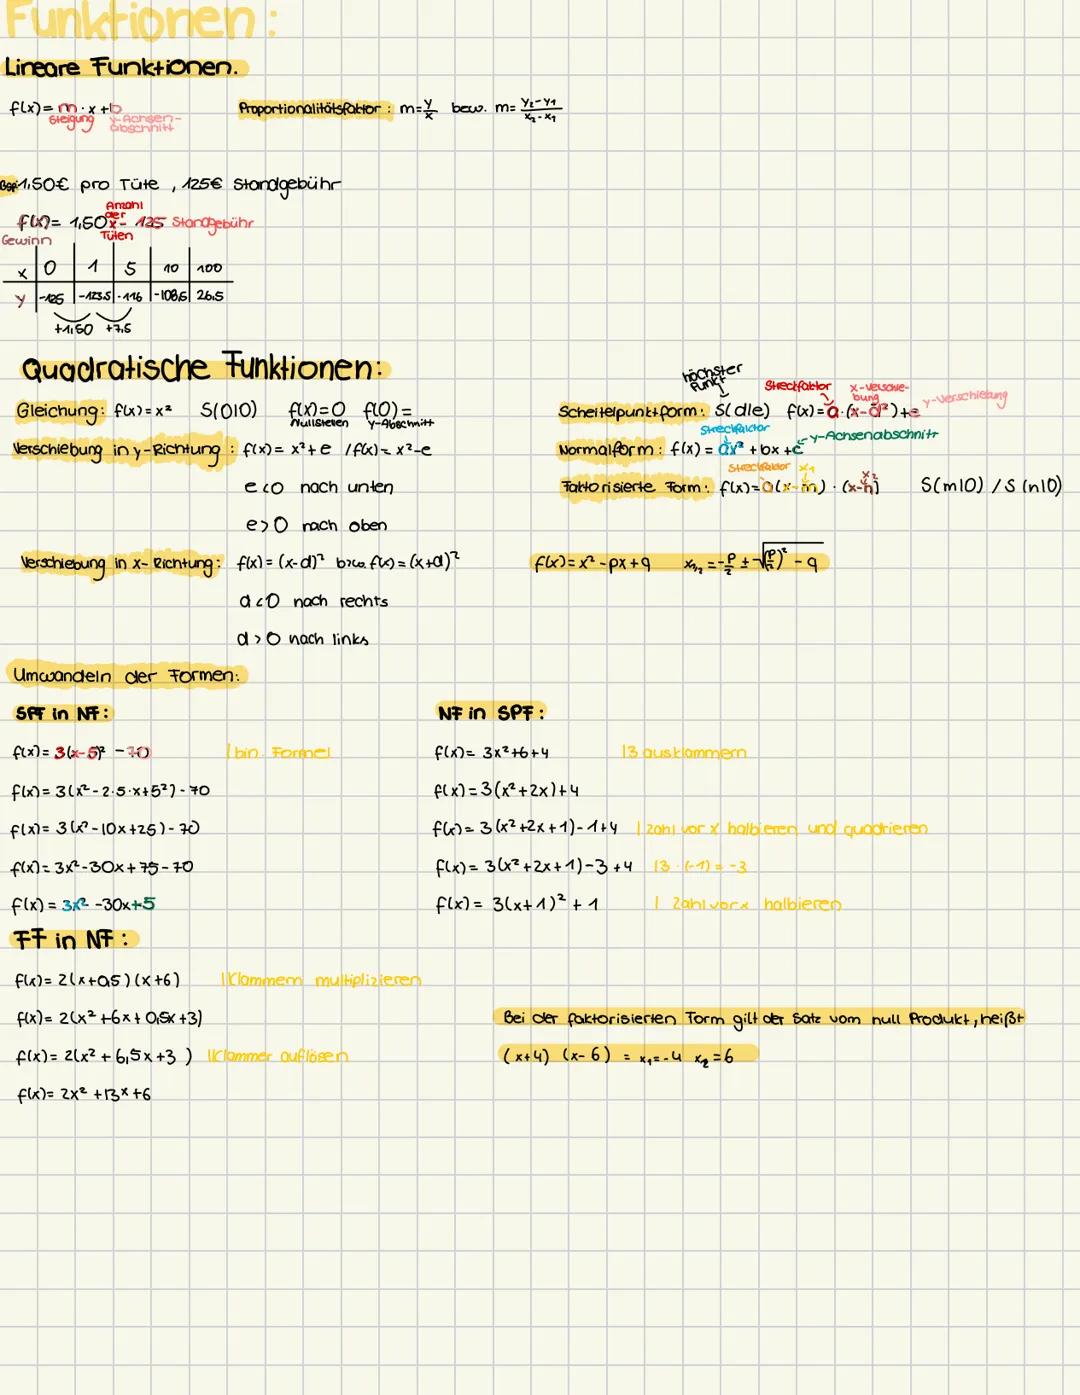 Funktionen:
Lineare Funktionen.
f(x)= m · x + b
Steigung y-Achsen-
abschnitt
Proportionalitätsfaktor: m=y/x bew. m= y₂-y₁/x₂-x₁
Bsp: 1,50€ pro Tüte , 125€ Standgebühr
Anzahl
der
f(x)= 1,50x- 125 Standgebühr
Gewinn Tüten
x 0 1 5 10 100
y -125 -123.5 -116 -108,5 26.5
+1,50 +7,5
Quadratische Funktionen:
Gleichung: f(x)=x² S(0|0) f(x)=0 f(0)=
Nullstellen y-Abschnitt
Verschiebung in y-Richtung: f(x)= x²+e /f(x)=x²-e
e<0 nach unten
e>0 nach oben
Verschiebung in x-Richtung: f(x)=(x-d)² bzw. f(x)=(x+d)²
d<0 nach rechts
d>0 nach links
höchster
Punkt
Streckfaktor x-Verschie-
bung
y-Verschiebung
Scheitelpunktform: S(d|e) f(x)=a·(x-d)²)+e
Streckfaktor y-Achsenabschnitt
Normalform: f(x)= ax² + bx +c
Streckfaktor x₁ x₂
Faktorisierte Form: f(x)=a(x-m)·(x-n) S(m|0) / S(n|0)
f(x)=x²-px+q x₁,₂=-p/2 ± √(p/2)² - q
Umwandeln der Formen:
SPF in NF:
f(x)= 3(x-5)² - 70 | bin. Formel
f(x)= 3(x²-2·5·x+5²)-70
f(x)= 3(x²-10x+25)-70
f(x)= 3x²-30x+75-70
f(x)= 3x² -30x+5
NF in SPF:
f(x)= 3x²+6+4 |3 ausklammern
f(x)=3(x²+2x)+4
f(x)= 3(x²+2x+1)-1+4 | Zahl vor x halbieren und quadrieren
f(x)= 3(x²+2x+1)-3+4 |3·(-1)=-3
f(x)= 3(x+1)² + 1 | Zahl vor x halbieren
FF in NF:
f(x)= 2(x+0,5)(x+6) |Klammern multiplizieren
f(x)= 2(x²+6x+0,5x+3)
f(x)= 2(x² + 6,5x +3 ) |Klammer auflösen
f(x)= 2x² +13x +6
Bei der faktorisierten Form gilt der Satz vom null Produkt, heißt
(x+4) (x-6) = x₁=-4 x₂=6